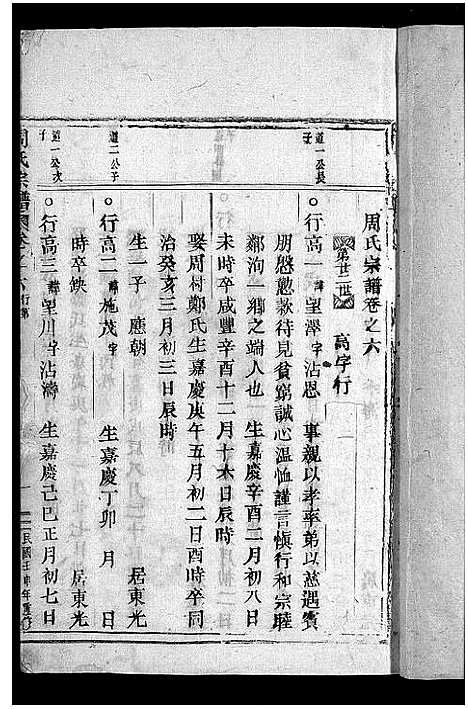 周氏宗譜卷之六
第廿二世 高字行
道一公長子
○行高一 諱望濘字沾恩 事親以孝率弟以慈遇賓
朋慇懃款待見貧窮誠心溫恤謹言愼行和宗睦
鄰洵一鄉之端人也 生嘉慶辛酉二月初八日
未時卒咸豐辛酉十二月十六日辰時
娶周村鄭氏生嘉慶庚午五月初二日酉時卒同
治癸亥三月初三日辰時
生一子 應朝 居東光
道二公子
○行高二 諱施茂字 生嘉慶丁卯 月 日
時卒缺 居東光
道一公次子
○行高三 諱望川字沾濤 生嘉慶己巳正月初七日
周氏宗譜 卷之六 行第 一 民國壬申年重修